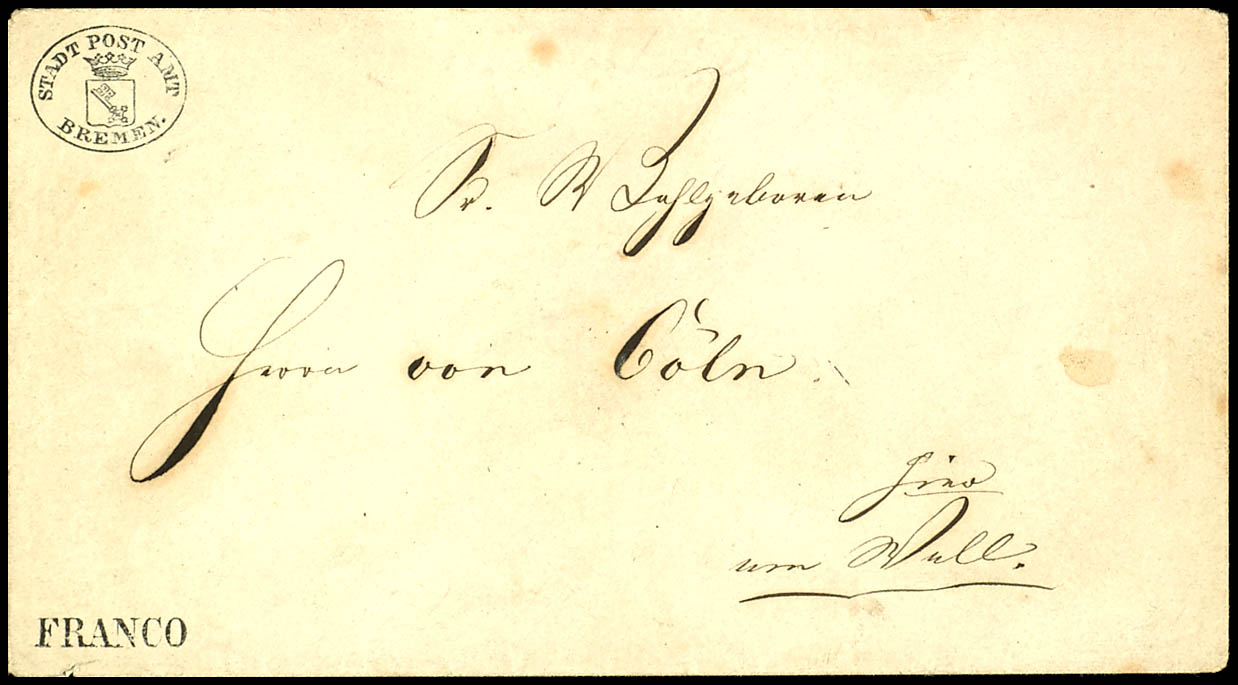 STADT POST AMT
BREMEN.
Sr. W Wohlgeboren
Herrn von Cöln
hier
am Wall.
FRANCO